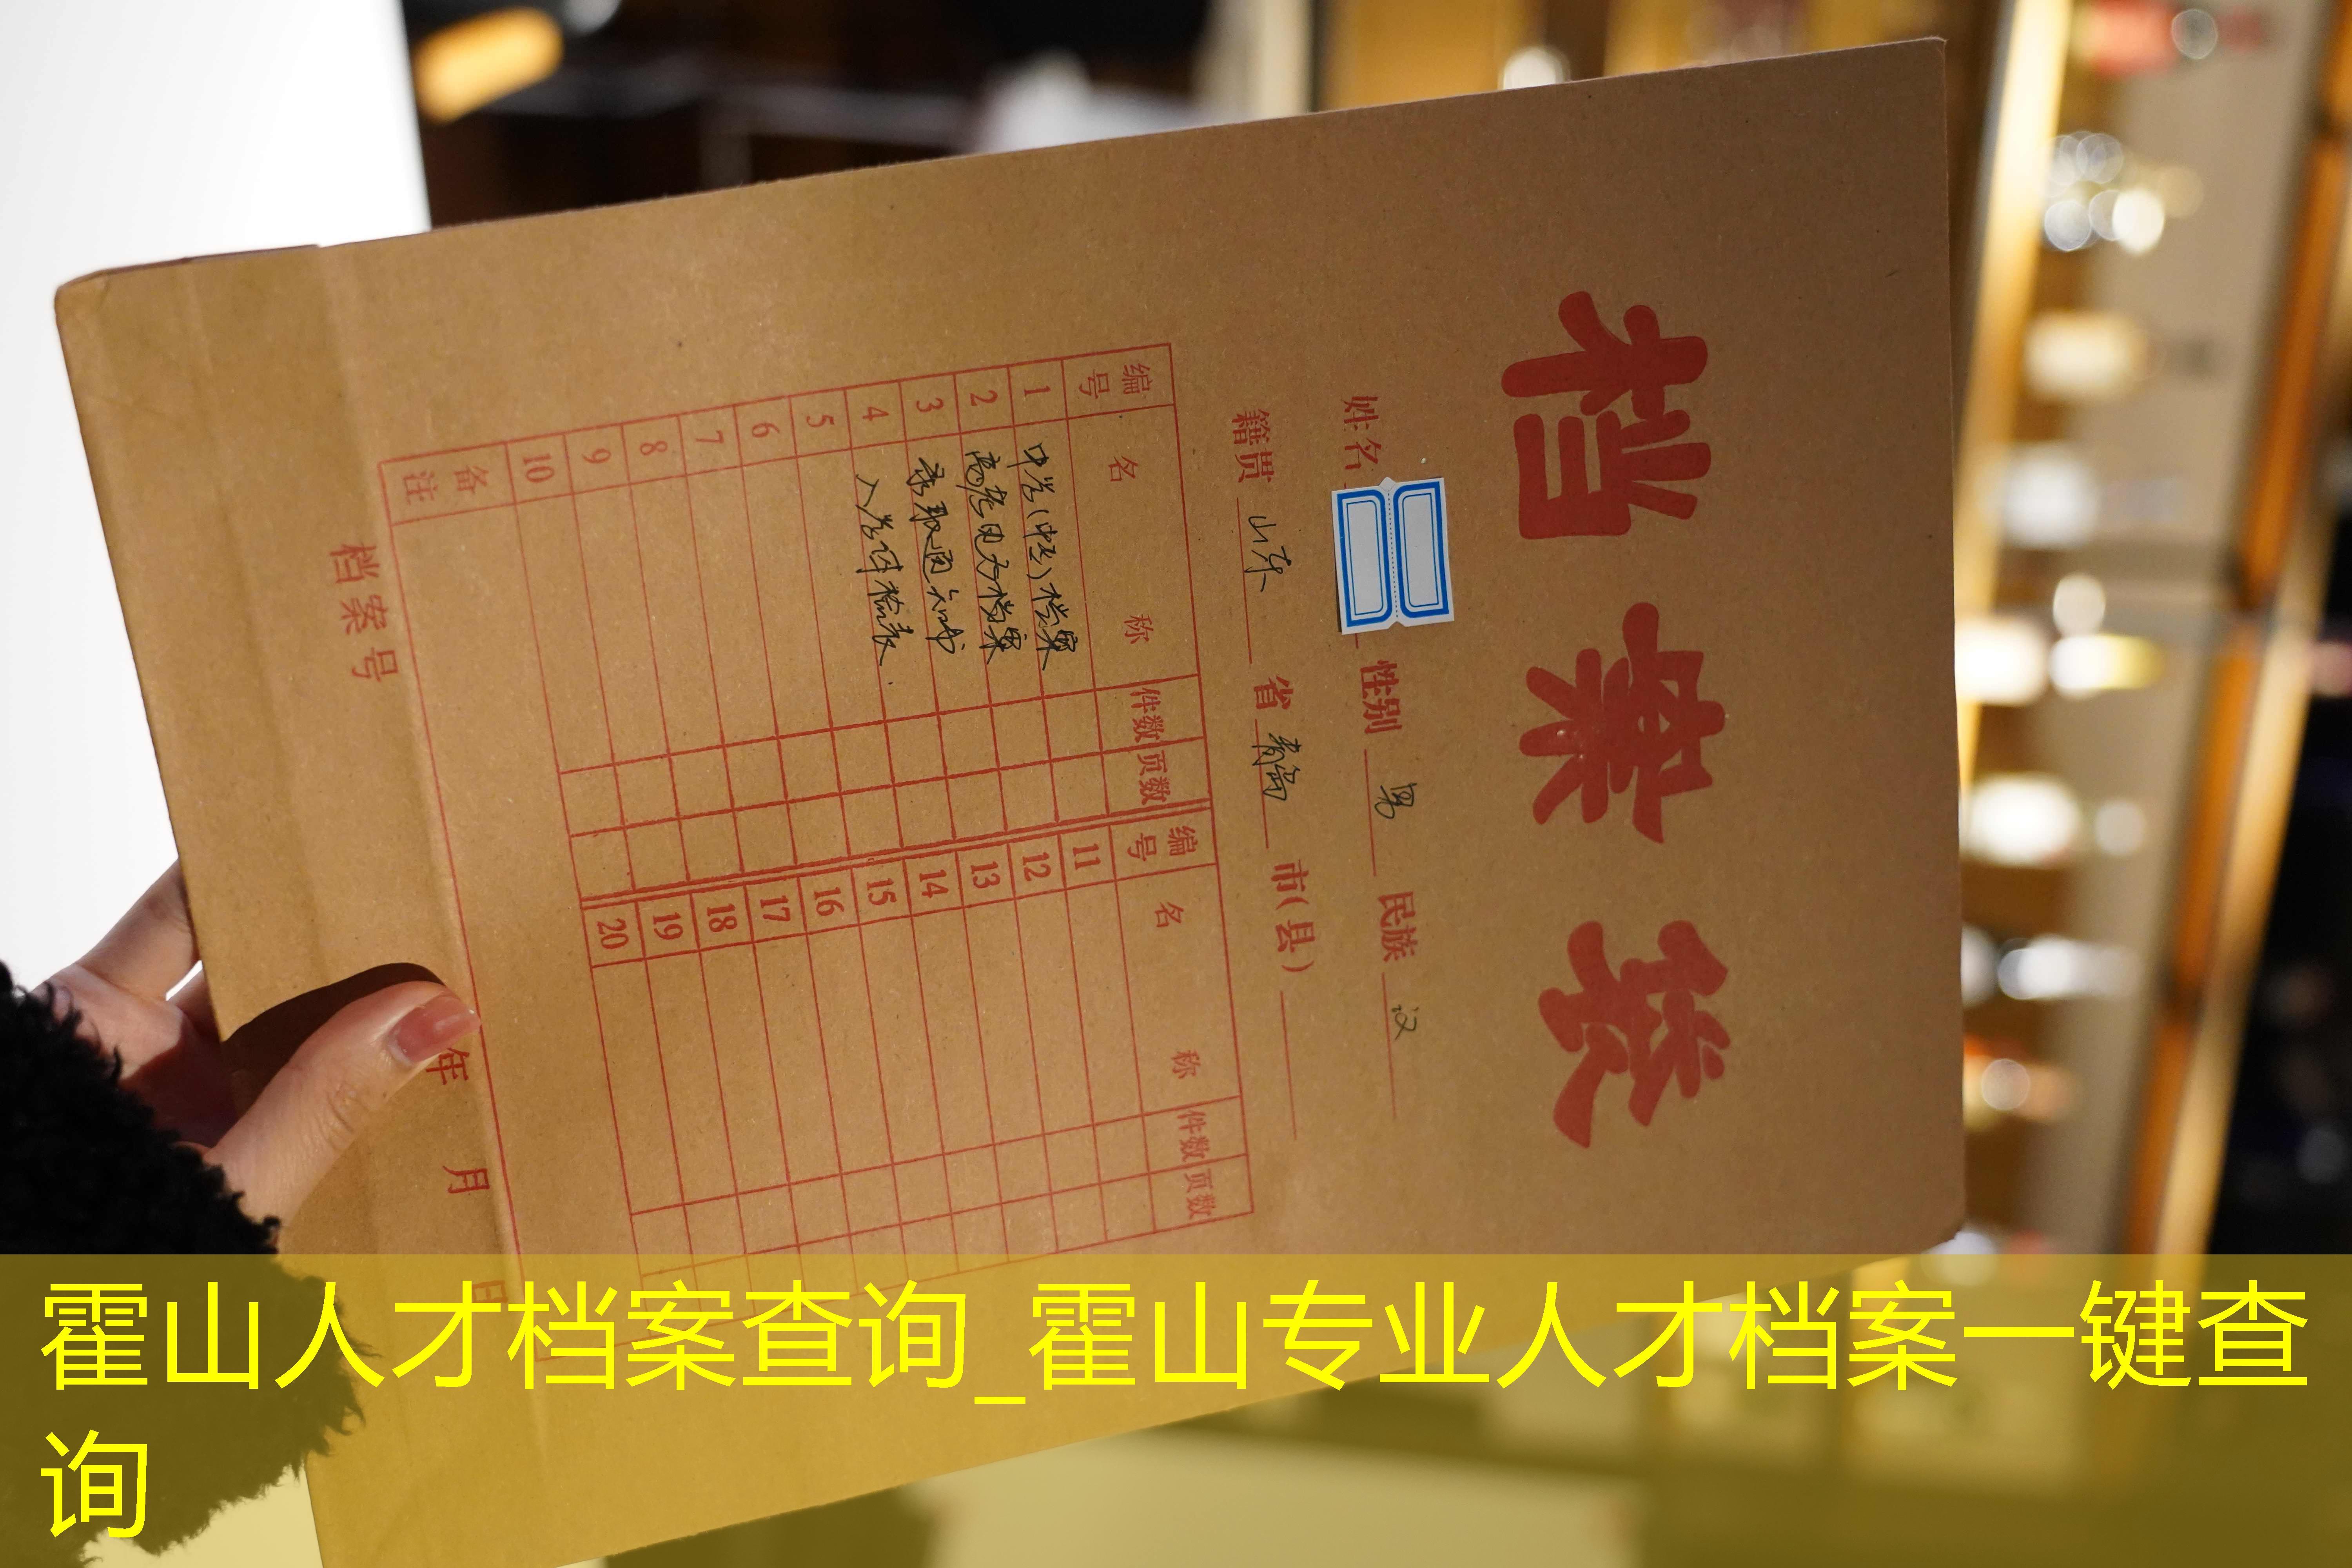 档案袋
姓名 性别 男 民族 汉
籍贯 山东 省 青岛 市(县)
编号 名称 件数 页数 编号 名称 件数 页数
1 中学(中专)档案 11
2 高考电子档案 12
3 录取通知书 13
4 入学体检表 14
5 15
6 16
7 17
8 18
9 19
10 20
备注
档案号 年 月 日
霍山人才档案查询_霍山专业人才档案一键查
询